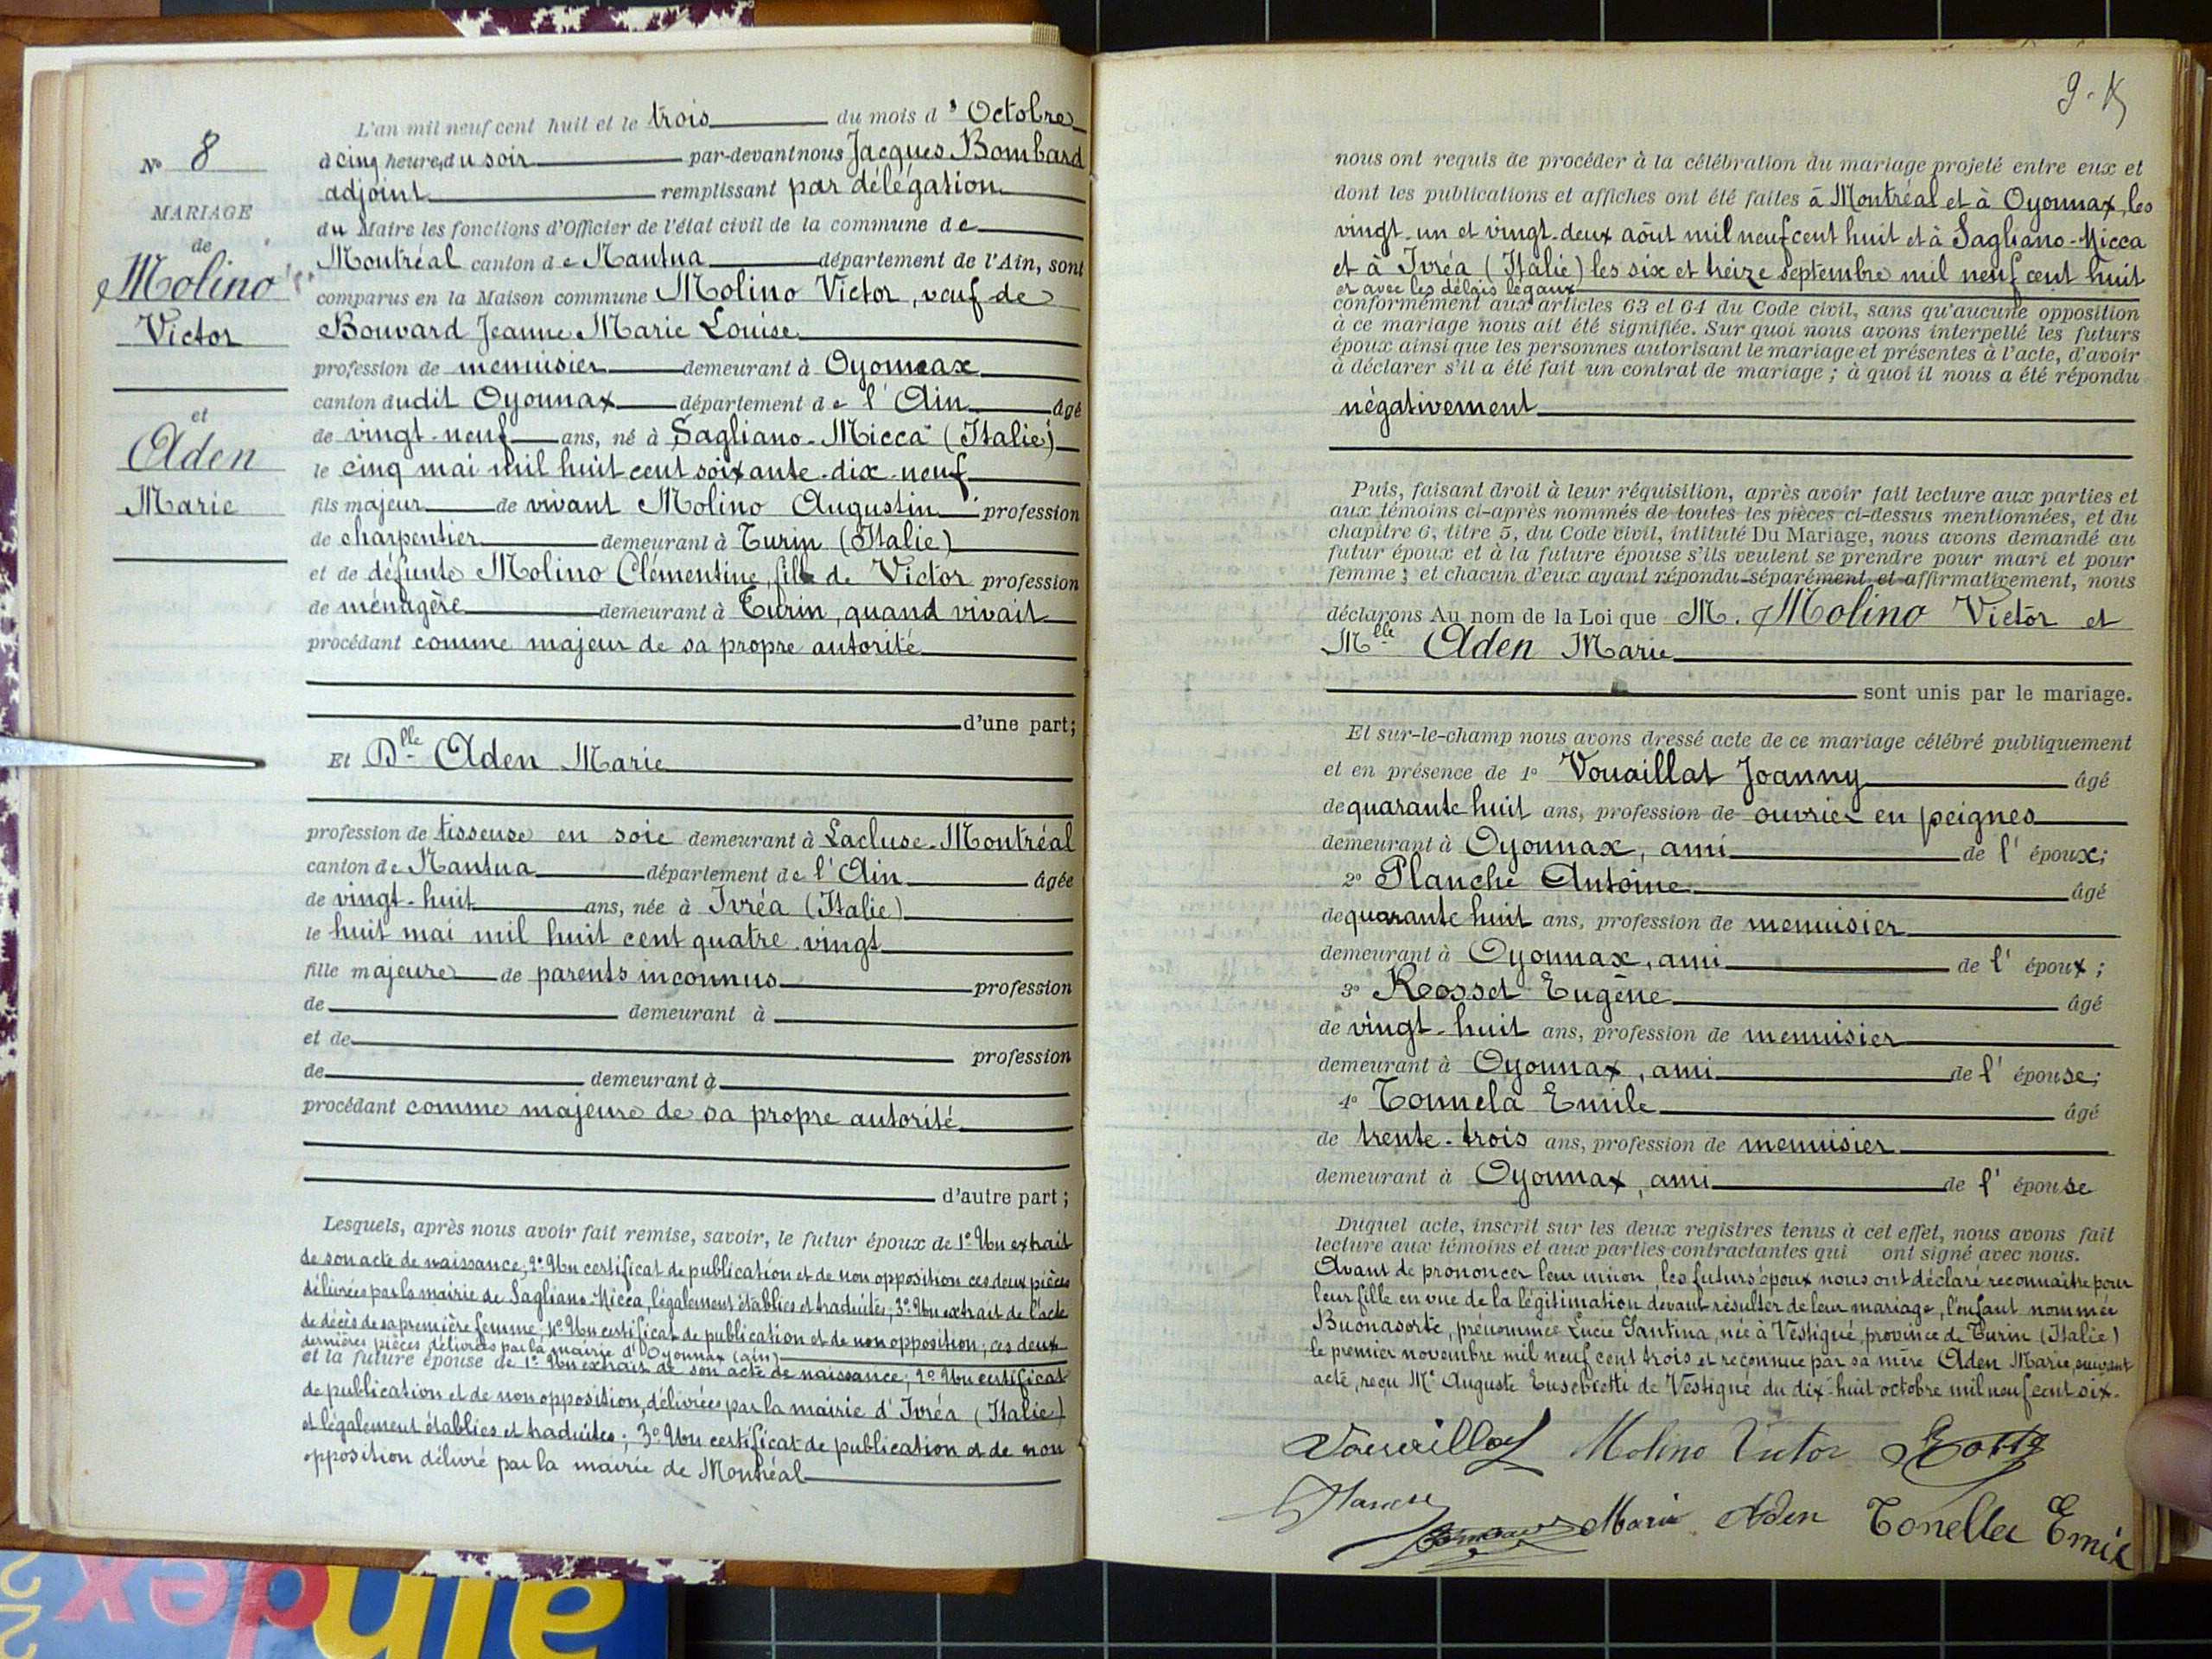 N° 8
MARIAGE
de
Molino
Victor
et
Aden
Marie
L'an mil neuf cent huit et le trois du mois d'Octobre
à cinq heures du soir par-devant nous Jacques Bombard
adjoint remplissant par délégation
du Maire les fonctions d'Officier de l'état civil de la commune de
Montréal canton de Nantua département de l'Ain, sont
comparus en la Maison commune Molino Victor, veuf de
Bouvard Jeanne Marie Louise
profession de menuisier demeurant à Oyonnax
canton dudit Oyonnax département de l'Ain âgé
de vingt-neuf ans, né à Sagliano-Micca (Italie)
le cinq mai mil huit cent soixante-dix-neuf
fils majeur de vivant Molino Augustin profession
de charpentier demeurant à Turin (Italie)
et de défunte Molino Clémentine, fille de Victor profession
de ménagère demeurant à Turin, quand vivait
procédant comme majeur de sa propre autorité
d'une part;
Et Dlle Aden Marie
profession de tisseuse en soie demeurant à Lacluse-Montréal
canton de Nantua département de l'Ain âgée
de vingt-huit ans, née à Ivréa (Italie)
le huit mai mil huit cent quatre-vingt
fille majeure de parents inconnus profession
de demeurant à
et de profession
de demeurant à
procédant comme majeure de sa propre autorité
d'autre part;
Lesquels, après nous avoir fait remise, savoir, le futur époux de 1° Un extrait
de son acte de naissance; 2° Un certificat de publication et de non opposition ces deux pièces
délivrées par la mairie de Sagliano-Micca, légalement établies et traduites; 3° Un extrait de l'acte
de décès de sa première femme; 4° Un certificat de publication et de non opposition; ces deux
dernières pièces délivrées par la mairie d'Oyonnax (ain)
et la future épouse de 1° Un extrait de son acte de naissance; 2° Un certificat
de publication et de non opposition, délivrées par la mairie d'Ivréa (Italie)
et légalement établies et traduites; 3° Un certificat de publication et de non
opposition délivré par la mairie de Montréal
nous ont requis de procéder à la célébration du mariage projeté entre eux et
dont les publications et affiches ont été faites à Montréal et à Oyonnax, les
vingt-un et vingt-deux août mil neuf cent huit et à Sagliano-Micca
et à Ivréa (Italie) les six et treize septembre mil neuf cent huit
et avec les délais légaux
conformément aux articles 63 et 64 du Code civil, sans qu'aucune opposition
à ce mariage nous ait été signifiée. Sur quoi nous avons interpellé les futurs
époux ainsi que les personnes autorisant le mariage et présentes à l'acte, d'avoir
à déclarer s'il a été fait un contrat de mariage; à quoi il nous a été répondu
négativement
Puis, faisant droit à leur réquisition, après avoir fait lecture aux parties et
aux témoins ci-après nommés de toutes les pièces ci-dessus mentionnées, et du
chapitre 6, titre 5, du Code civil, intitulé Du Mariage, nous avons demandé au
futur époux et à la future épouse s'ils veulent se prendre pour mari et pour
femme; et chacun d'eux ayant répondu séparément et affirmativement, nous
déclarons Au nom de la Loi que M. Molino Victor et
Mlle Aden Marie
sont unis par le mariage.
Et sur-le-champ nous avons dressé acte de ce mariage célébré publiquement
et en présence de 1° Vouaillat Joanny âgé
de quarante huit ans, profession de ouvrier en peignes
demeurant à Oyonnax, ami de l'époux;
2° Planche Antoine âgé
de quarante huit ans, profession de menuisier
demeurant à Oyonnax, ami de l'époux;
3° Rosset Eugène âgé
de vingt-huit ans, profession de menuisier
demeurant à Oyonnax, ami de l'épouse;
4° Tonnela Emile âgé
de trente-trois ans, profession de menuisier
demeurant à Oyonnax, ami de l'épouse
Duquel acte, inscrit sur les deux registres tenus à cet effet, nous avons fait
lecture aux témoins et aux parties contractantes qui ont signé avec nous.
Avant de prononcer leur union les futurs époux nous ont déclaré reconnaître pour
leur fille en vue de la légitimation devant résulter de leur mariage, l'enfant nommée
Buonasorte, prénommée Lucie Santina, née à Vestigné, province de Turin (Italie)
le premier novembre mil neuf cent trois et reconnue par sa mère Aden Marie, suivant
acte, reçu Me Auguste Eusebietti de Vestigné du dix-huit octobre mil neuf cent six.
Molino Victor
Marie Aden Tonella Emile
index